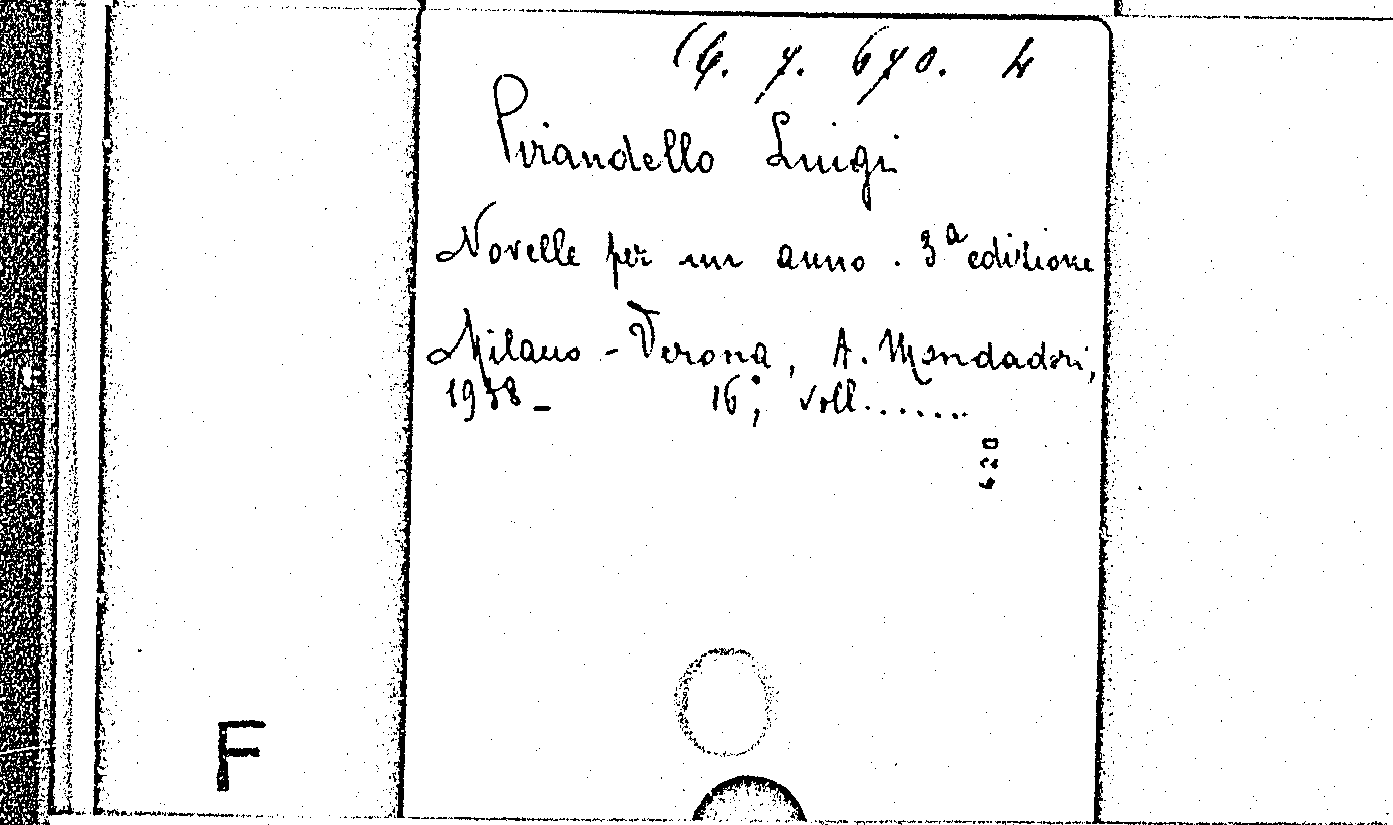 6. 7. 670. 4
Pirandello Luigi
Novelle per un anno. 3ª edizione
Milano - Verona, A. Mondadori,
1938 - 16°; voll.......
F